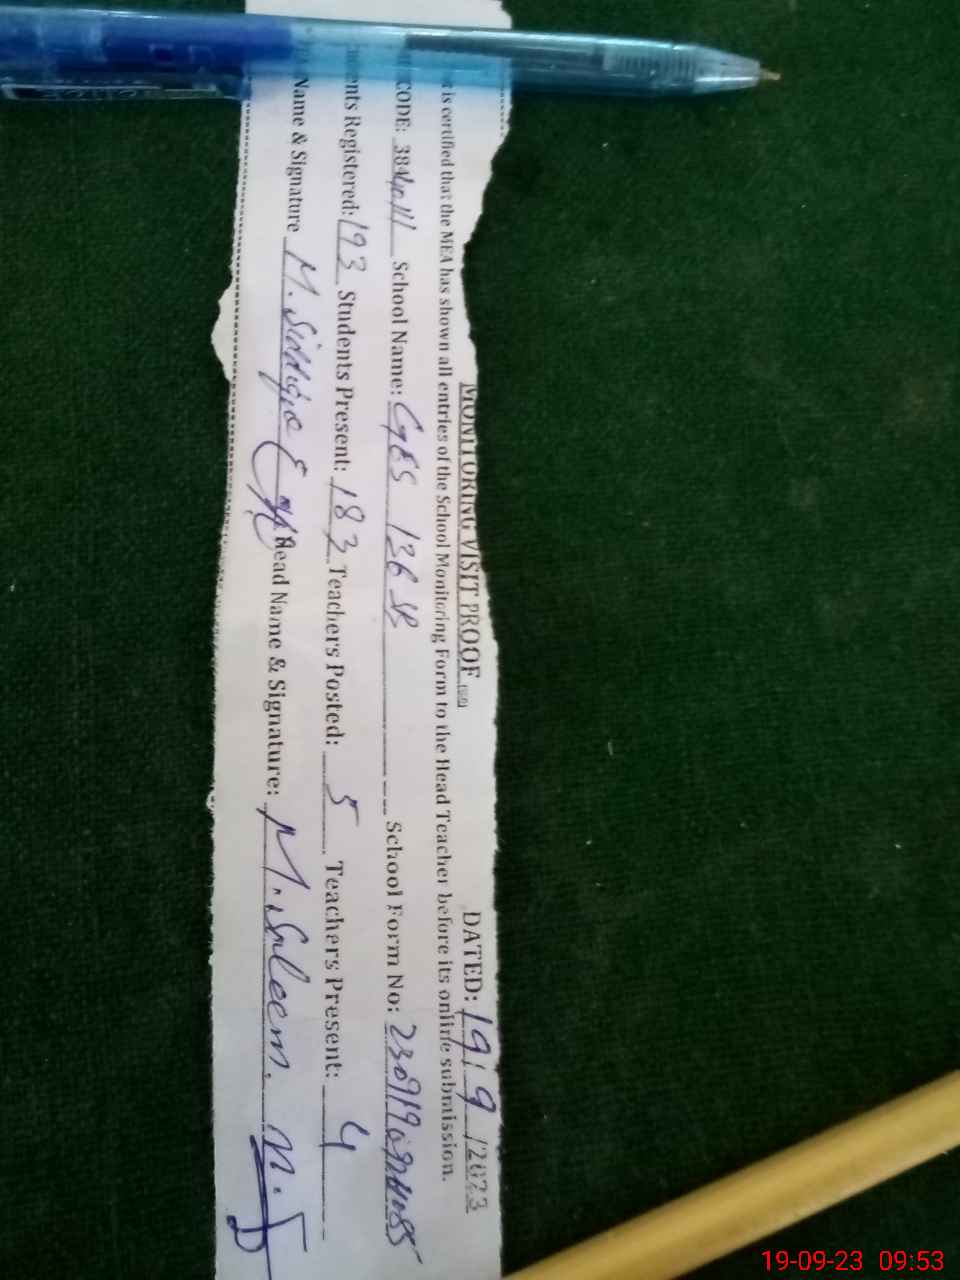 MONITORING VISIT PROOF DATED: 19/9/2023
is certified that the MEA has shown all entries of the School Monitoring Form to the Head Teacher before its online submission.
CODE: School Name: GES 136 SP School Form No:
ents Registered: 193 Students Present: 183 Teachers Posted: 5 Teachers Present: 4
Name & Signature M. Siddique Head Name & Signature: M. Saleem.
19-09-23 09:53